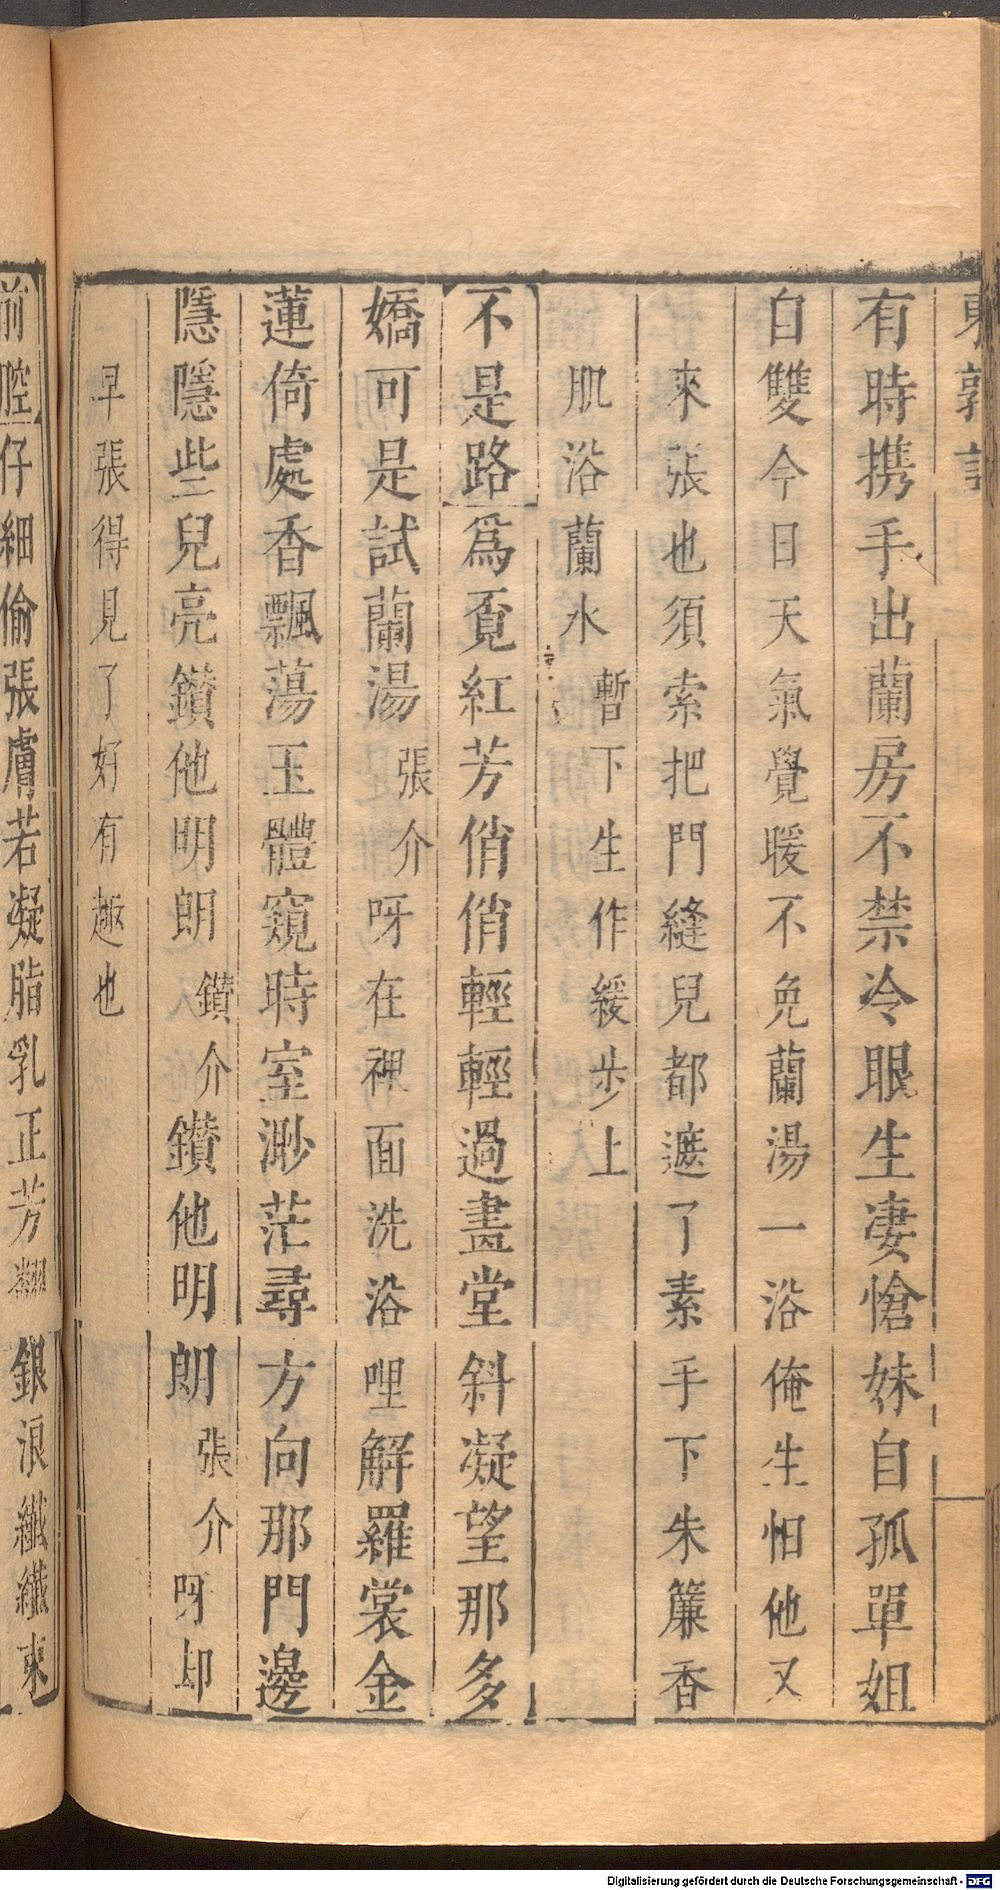 東郭記
有時携手出蘭房不禁冷眼生凄愴妹自孤單姐
自雙今日天氣覺暖不免蘭湯一浴俺生怕他又
來張也須索把門縫兒都遮了素手下朱簾香
肌浴蘭水暫下生作緩步上
不是路爲覔紅芳俏俏輕輕過畵堂斜凝望那多
嬌可是試蘭湯張介呀在裡面洗浴哩解羅裳金
蓮倚處香飄蕩玉體窺時室渺茫尋方向那門邊
隱隱些兒亮鑽他明朗鑚介鑚他明朗張介呀却
早張得見了好有趣也
前腔仔細偷張膚若凝脂乳正芳翻銀浪纖纖東
Digitalisierung gefördert durch die Deutsche Forschungsgemeinschaft - DFG